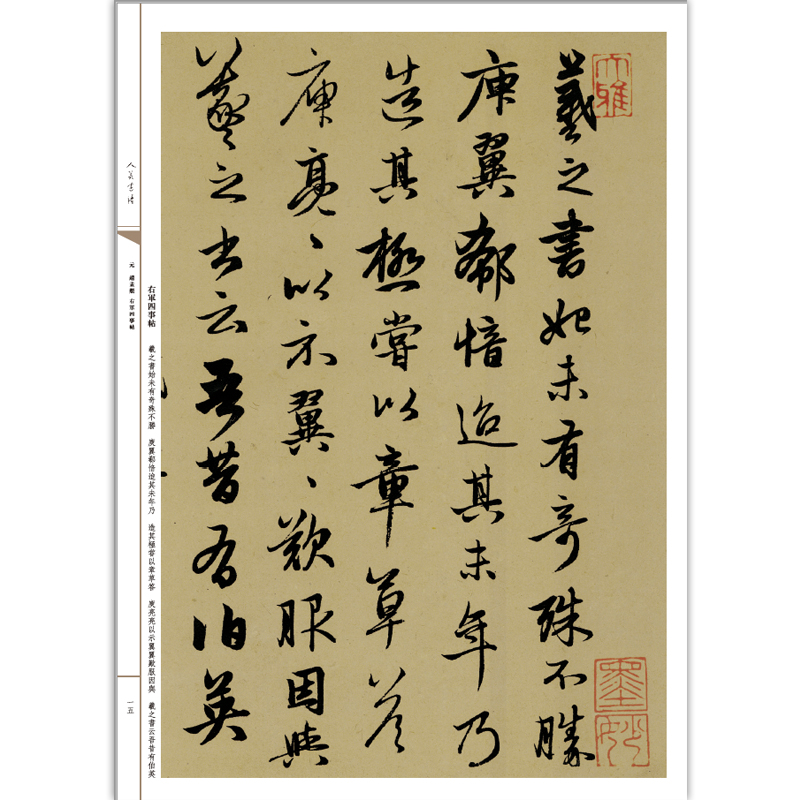 羲之書始未有奇殊不勝
庾翼郗愔迨其末年乃
造其極嘗以章草荅
庾亮〻以示翼〻歎服因與
羲之書云吾昔有伯英
大雅
墨妙
人美書譜
元 趙孟頫 右軍四事帖
右軍四事帖 羲之書始未有奇殊不勝 庾翼郗愔迨其末年乃 造其極嘗以章草答 庾亮亮以示翼翼歎服因與 羲之書云吾昔有伯英
一五